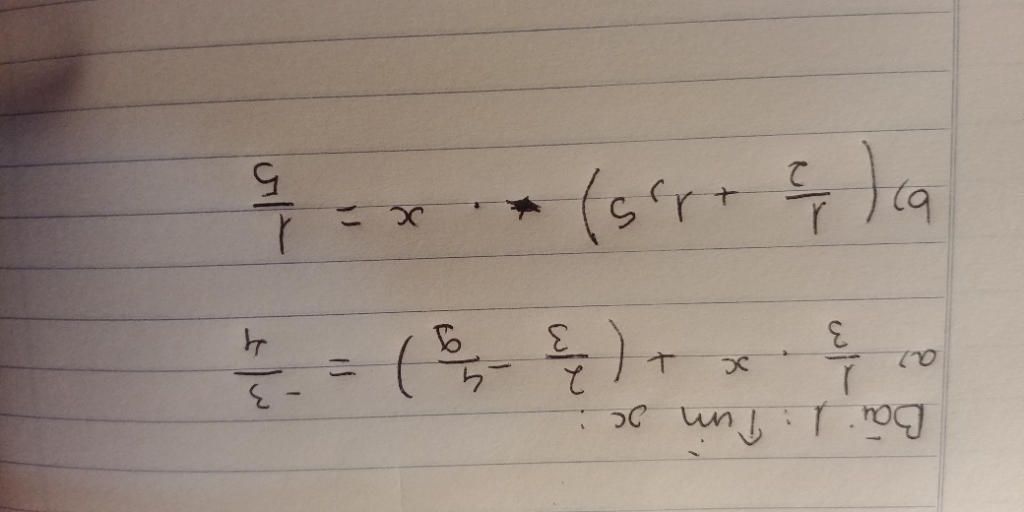 Bài 1: Tìm x:
a) 1/3 . x + (2/3 - 4/9) = -3/4
b) (1/2 + 1,5) . x = 1/5